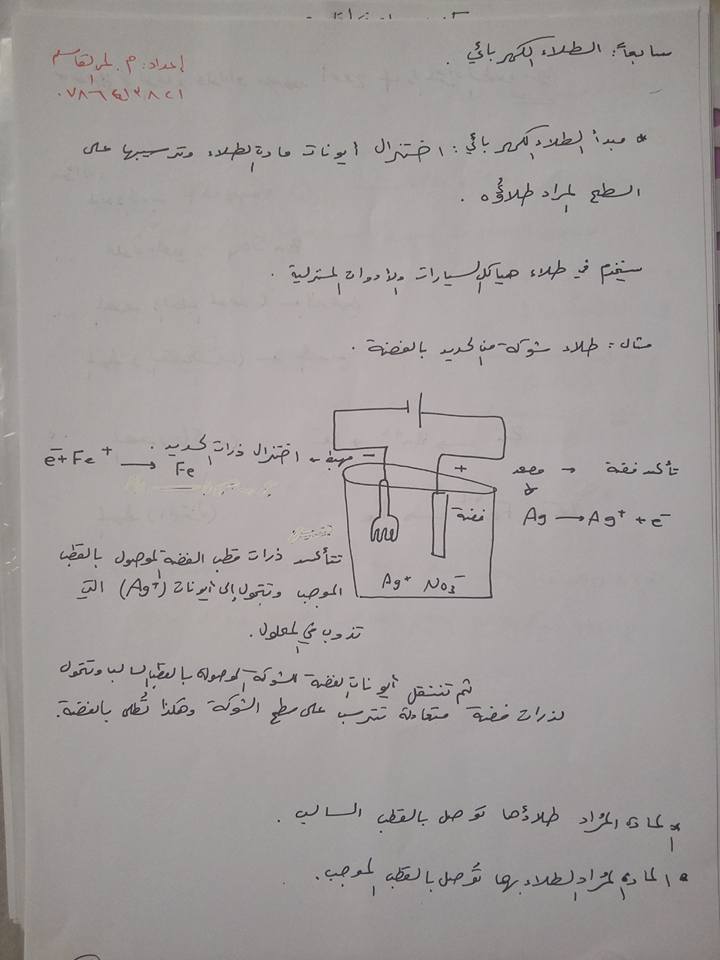 سابعاً: الطلاء الكهربائي.
إعداد: م. لمى القاسم
* مبدأ الطلاء الكهربائي: اختزال أيونات مادة الطلاء وترسيبها على
السطح المراد طلاؤه.
يستخدم في طلاء هياكل السيارات والأدوات المنزلية.
مثال: طلاء شوكة من الحديد بالفضة.
تأكسد فضة ← مصعد
+
Ag → Ag⁺ + e⁻
فضة
مهبط -
← اختزال ذرات الحديد.
e⁻ + Fe⁺ → Fe
Ag⁺ NO₃⁻
تتأكسد ذرات قطب الفضة الموصول بالقطب
الموجب وتتحول إلى أيونات (Ag⁺) التي
تذوب في المحلول.
ثم تنتقل أيونات الفضة للشوكة الموصولة بالقطب السالب وتتحول
لذرات فضة متعادلة تترسب على سطح الشوكة وهكذا تُطلى بالفضة.
* المادة المُراد طلاؤها توصل بالقطب السالب.
* المادة المُراد الطلاء بها تُوصل بالقطب الموجب.